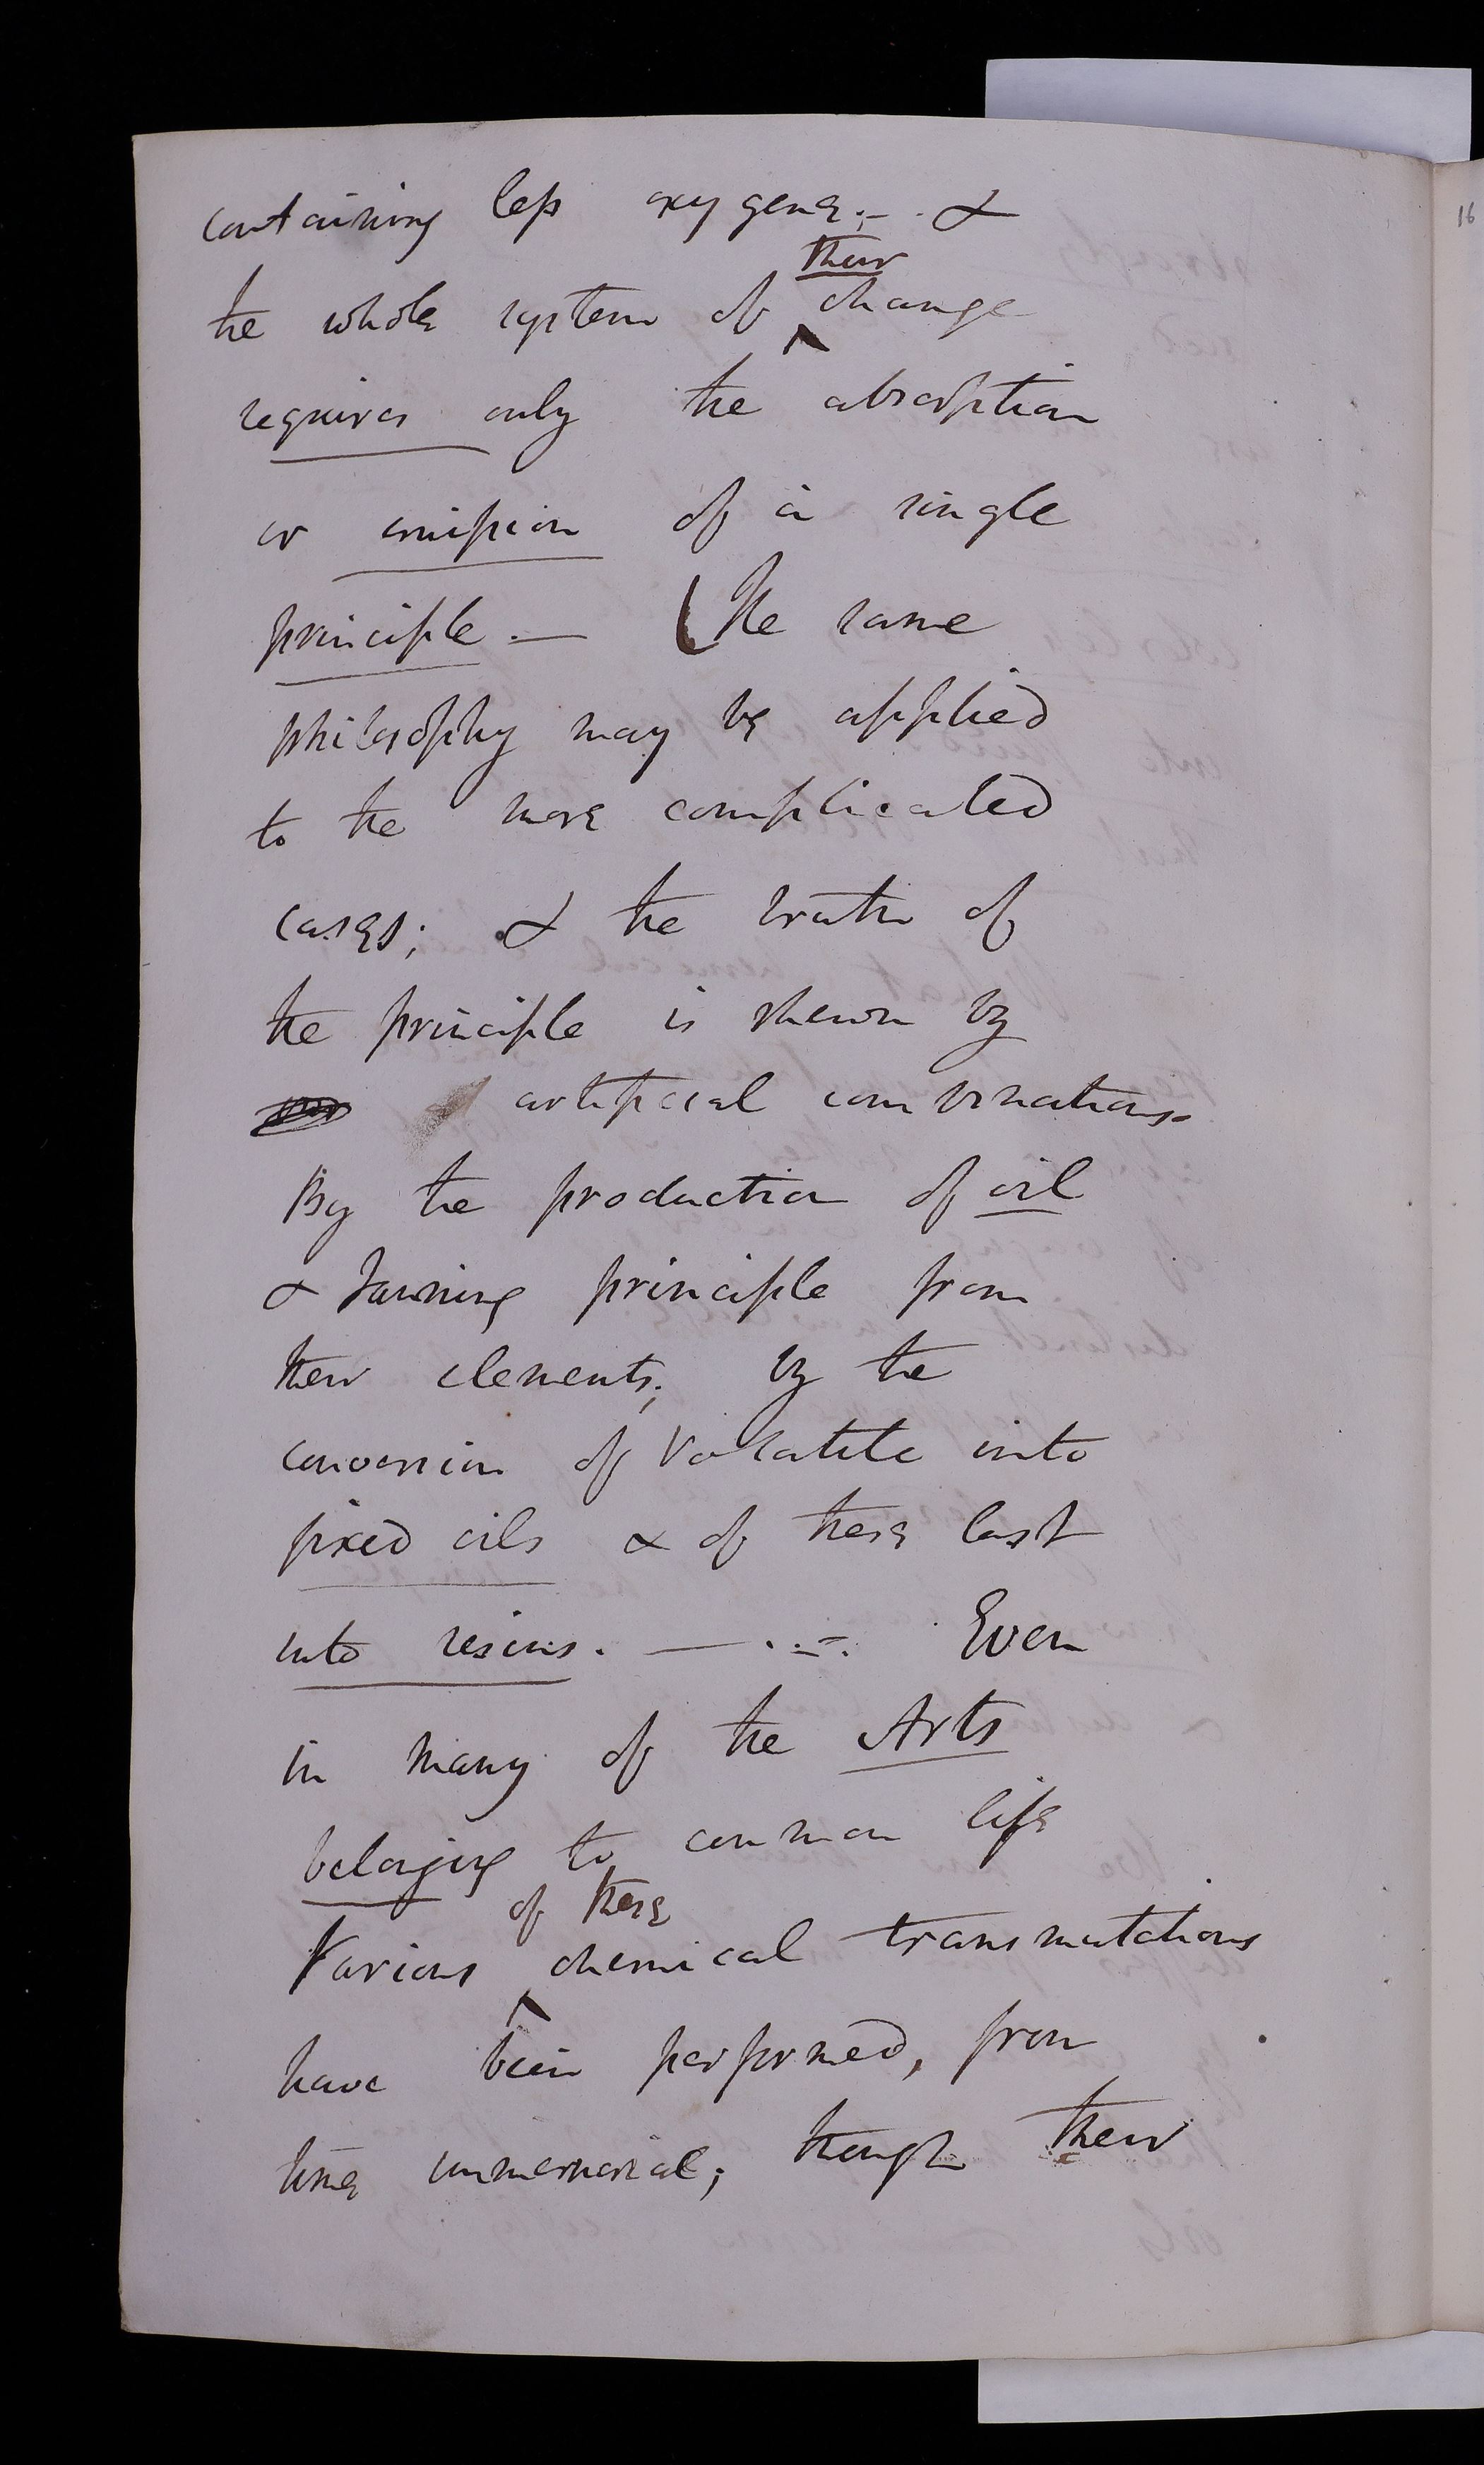 containing less oxygene; - . &
their
the whole system of change
requires only the absorption
or emission of a single
principle. — (The same
philosophy may be applied
to the more complicated
cases; & the truth of
the principle is shewn by
artificial combinations.
By the production of oil
& tanning principle from
their elements; by the
conversion of volatile into
fixed oils & of these last
into resins. — Even
in many of the Arts
belonging to common life
of these
Various chemical transmutations
have been performed, from
time immemorial; though their
16